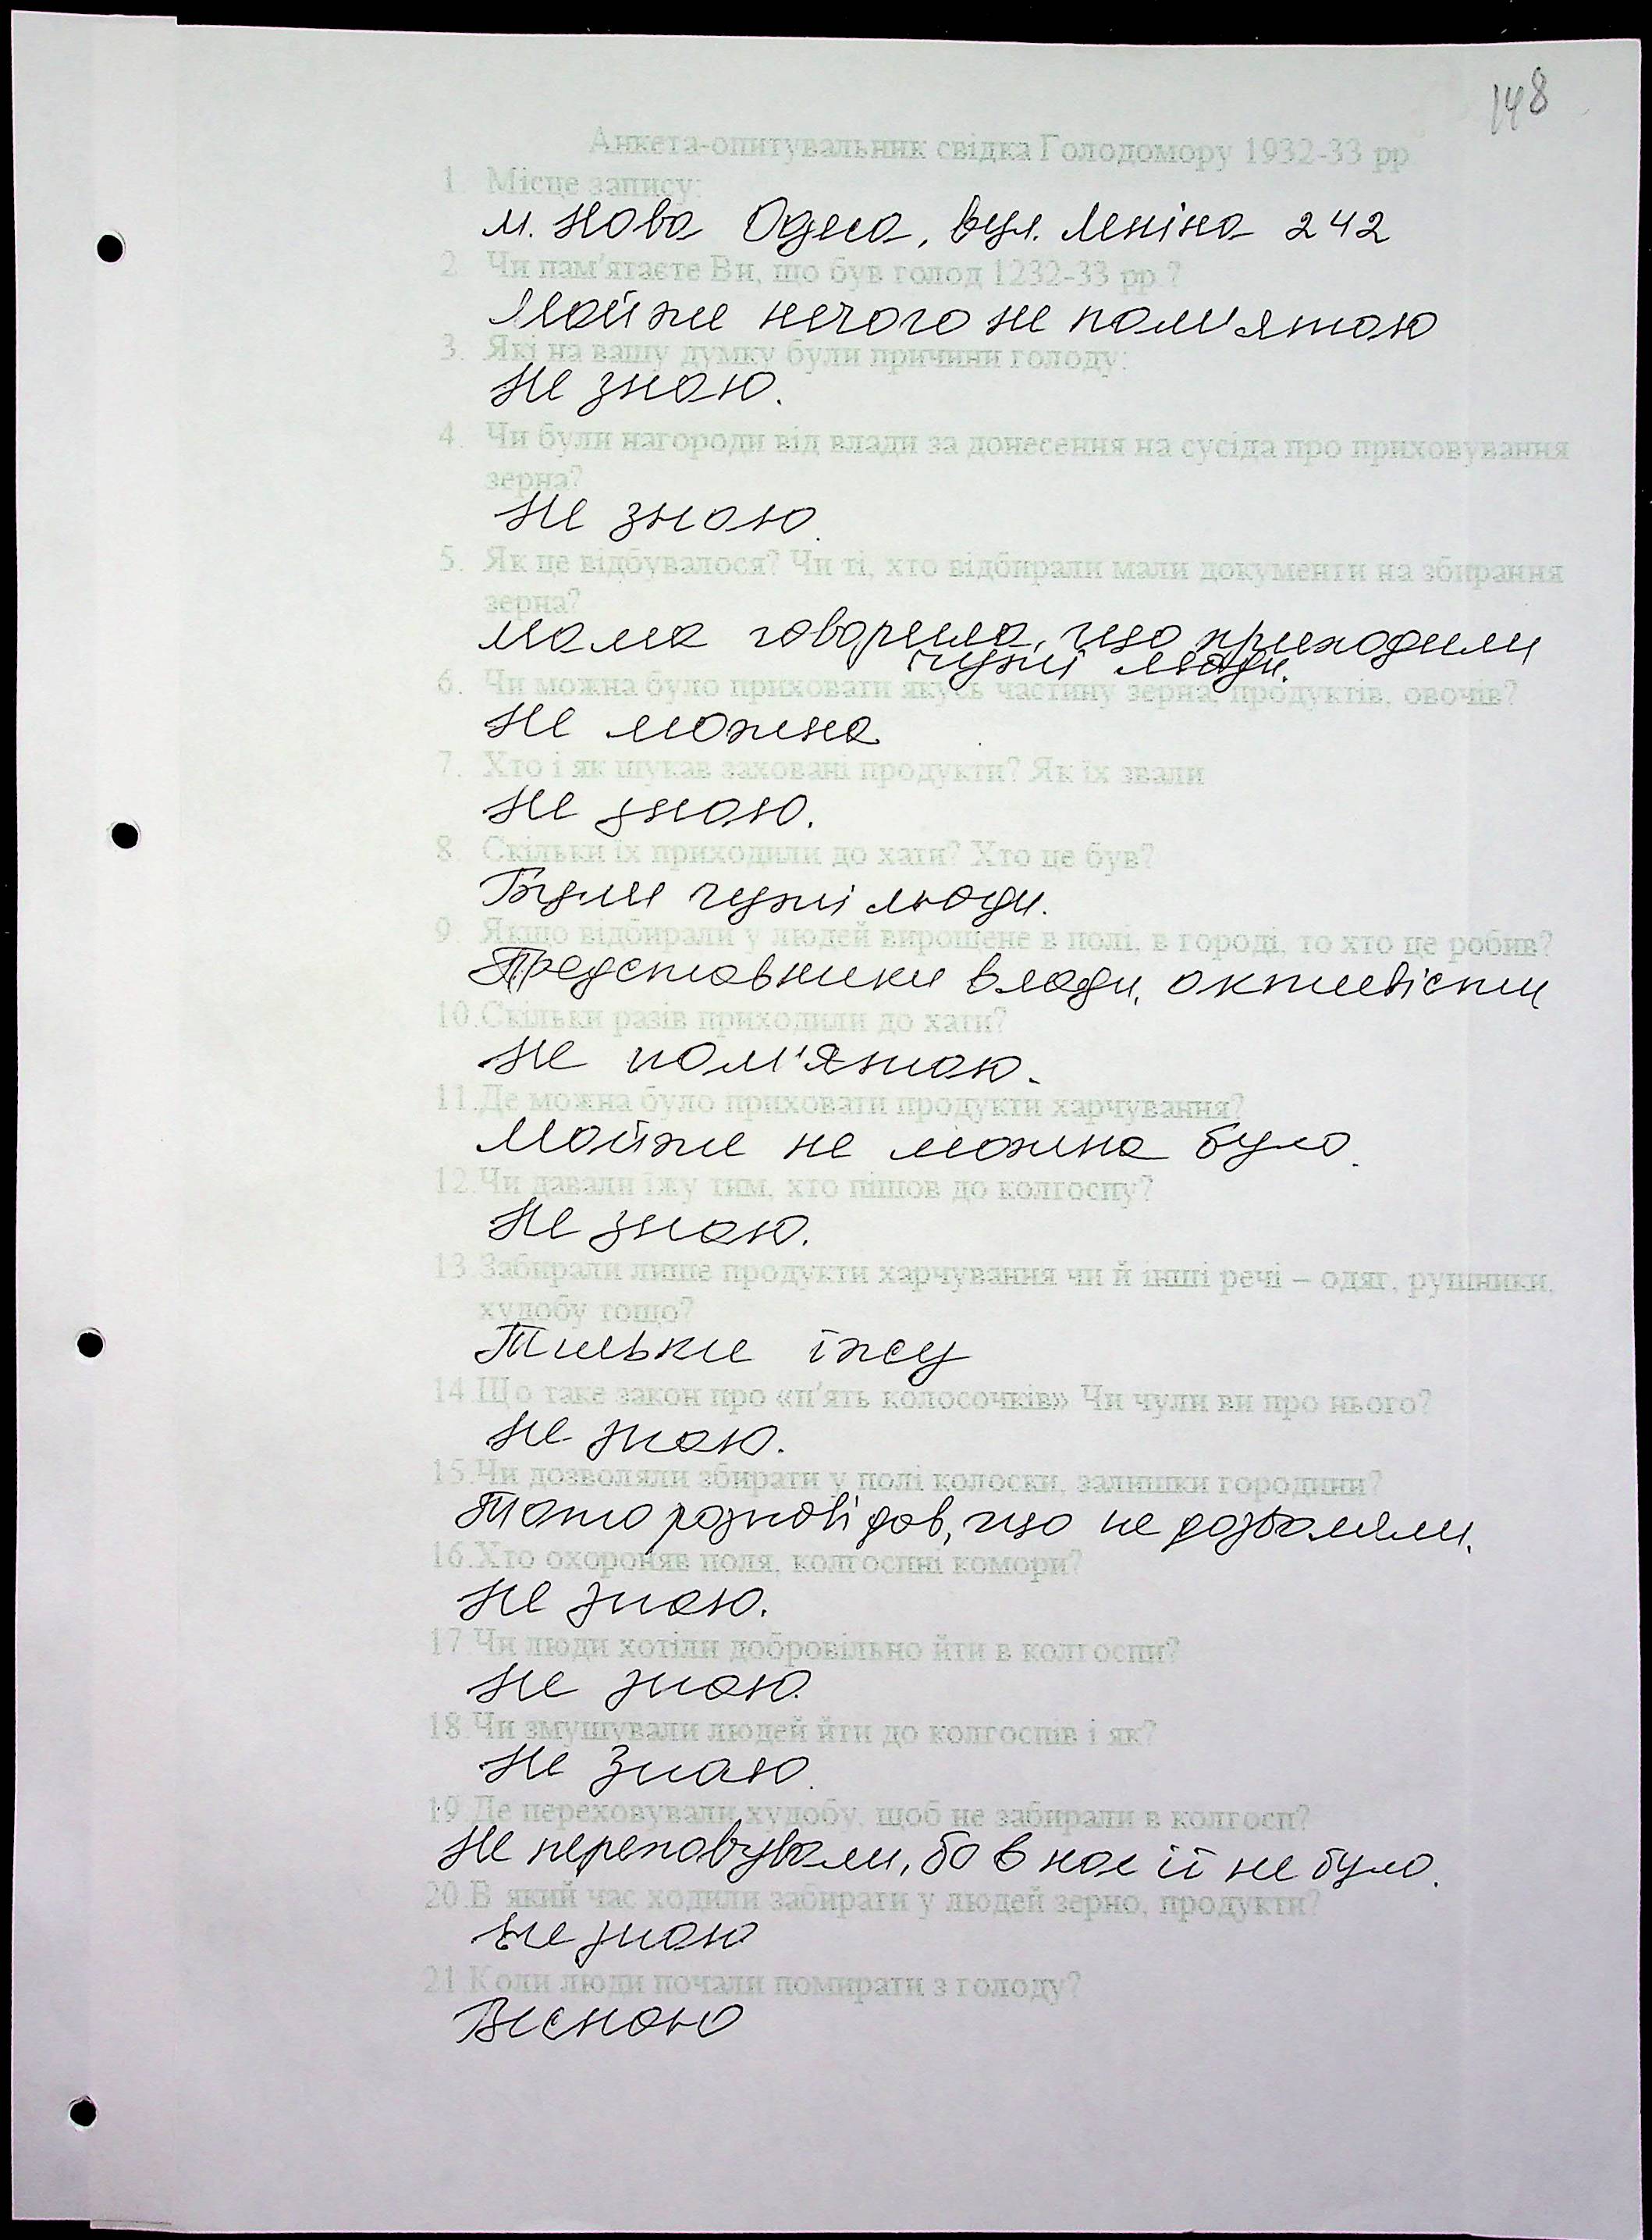 148
Анкета-опитувальник свідка Голодомору 1932-33 рр
1. Місце запису:
м. Нова Одеса, вул. Леніна 242
2. Чи пам'ятаєте Ви, що був голод 1232-33 рр.?
Майже нечого не пам'ятаю
3. Які на вашу думку були причини голоду:
Не знаю.
4. Чи були нагороди від влади за донесення на сусіда про приховування
зерна?
Не знаю.
5. Як це відбувалося? Чи ті, хто відбирали мали документи на збирання
зерна?
мама говорила, що приходили
чужі люди.
6. Чи можна було приховати якусь частину зерна, продуктів, овочів?
Не можна
7. Хто і як шукав заховані продукти? Як їх звали
Не знаю.
8. Скільки їх приходили до хати? Хто це був?
Були чужі люди.
9. Якщо відбирали у людей вирощене в полі, в городі, то хто це робив?
Представники влади, активісти
10.Скільки разів приходили до хати?
Не пам'ятаю.
11.Де можна було приховати продукти харчування?
Майже не можна було.
12.Чи давали їжу тим, хто пішов до колгоспу?
Не знаю.
13.Забирали лише продукти харчування чи й інші речі – одяг, рушники,
худобу тощо?
Тильки їжу
14.Що таке закон про «п'ять колосочків» Чи чули ви про нього?
Не знаю.
15.Чи дозволяли збирати у полі колоски, залишки городини?
Тато розповідав, що не дозволяли.
16.Хто охороняв поля, колгоспні комори?
Не знаю.
17.Чи люди хотіли добровільно йти в колгоспи?
Не знаю.
18.Чи змушували людей йти до колгоспів і як?
Не знаю.
19.Де переховували худобу, щоб не забирали в колгосп?
Не переховували, бо в нас її не було.
20.В який час ходили забирати у людей зерно, продукти?
Не знаю
21.Коли люди почали помирати з голоду?
Весною